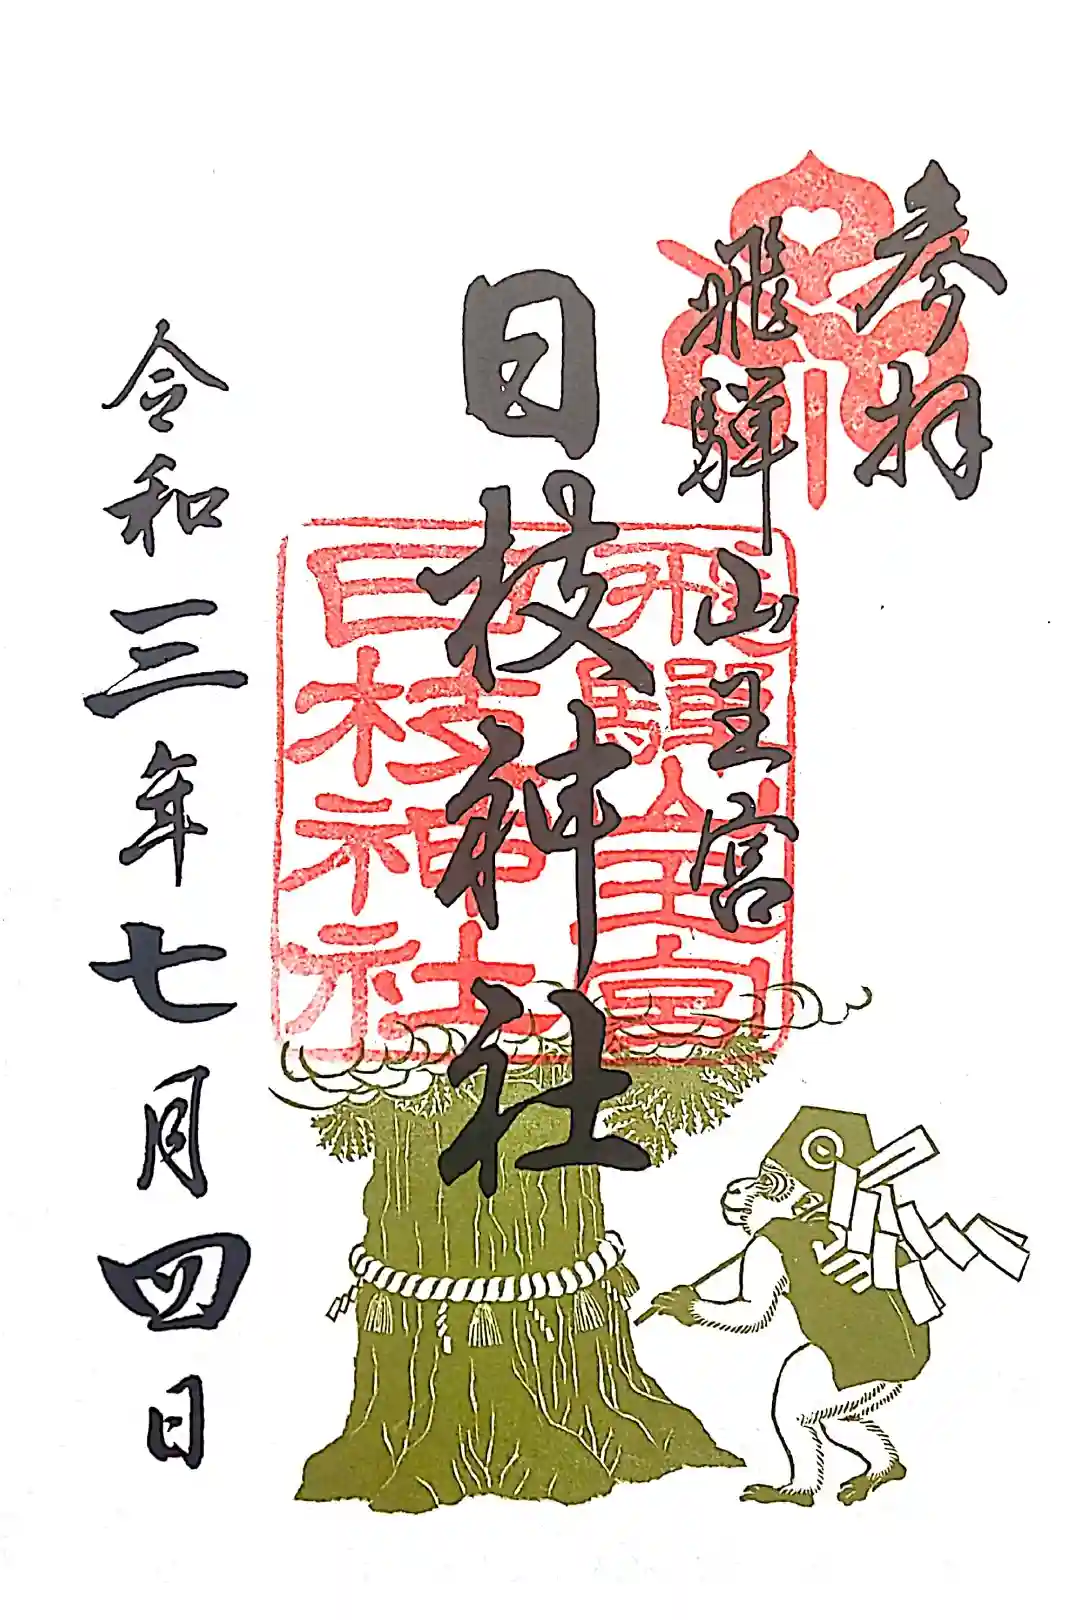 参拝
飛騨山王宮
日枝神社
令和三年七月四日
飛騨山王宮
日枝神社